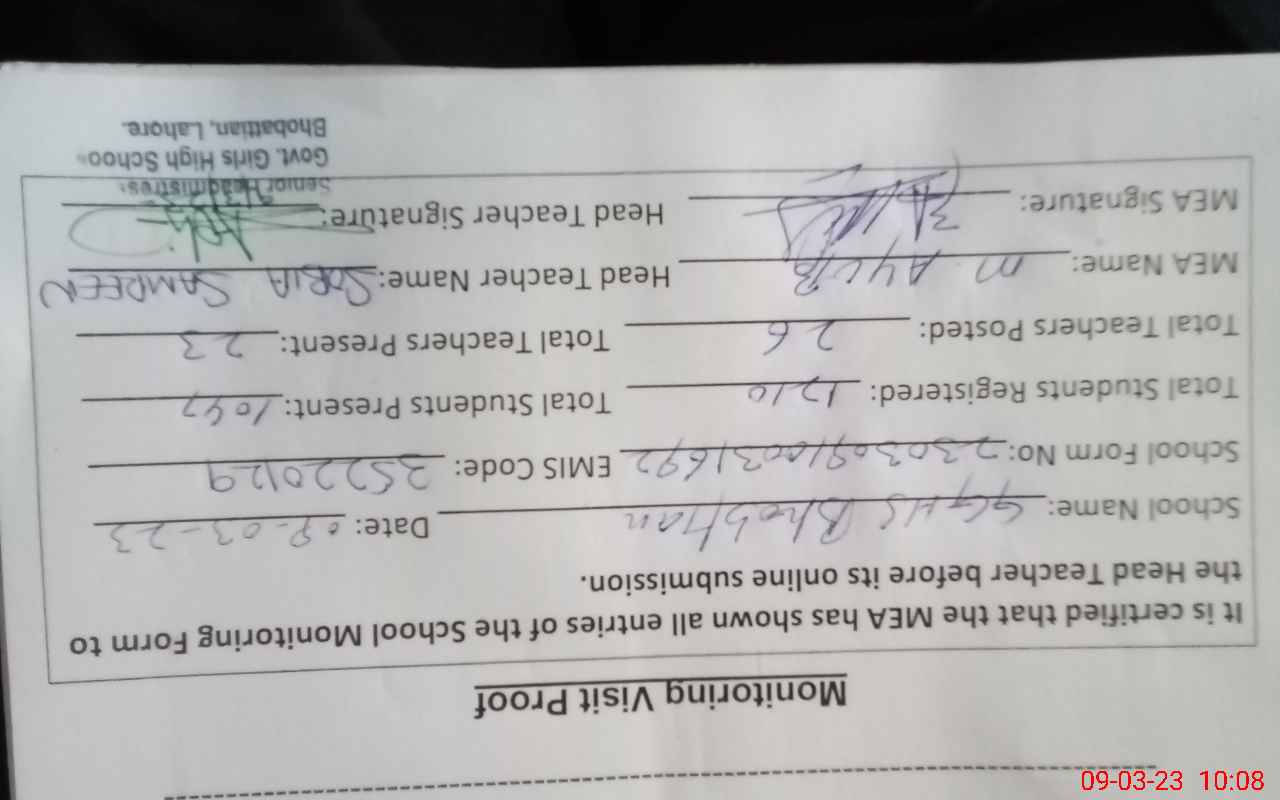 Monitoring Visit Proof
It is certified that the MEA has shown all entries of the School Monitoring Form to
the Head Teacher before its online submission.
School Name: GGHS Bhobttan Date: 09-03-23
School Form No: 23030910031692 EMIS Code: 35220129
Total Students Registered: 1210 Total Students Present: 1047
Total Teachers Posted: 26 Total Teachers Present: 23
MEA Name: M. AYUB Head Teacher Name: SOBIA SAMREEN
MEA Signature: Head Teacher Signature:
Senior Headmistres
Govt. Girls High School
Bhobattian, Lahore.
09-03-23 10:08